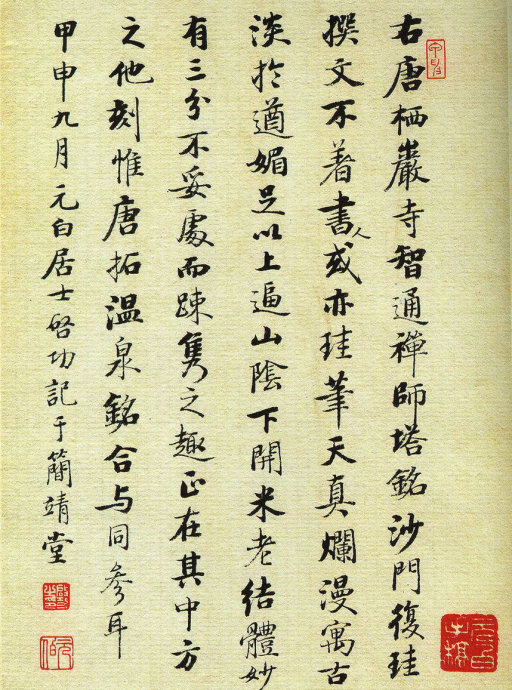 右唐栖巖寺智通禪師塔銘沙門復珪
撰文不着書人或亦珪筆天真爛漫寓古
淡於遒媚足以上逼山陰下開米老結體妙
有三分不妥處而踈雋之趣正在其中方
之他刻惟唐拓温泉銘合与同參耳
甲申九月元白居士啓功記于簡靖堂